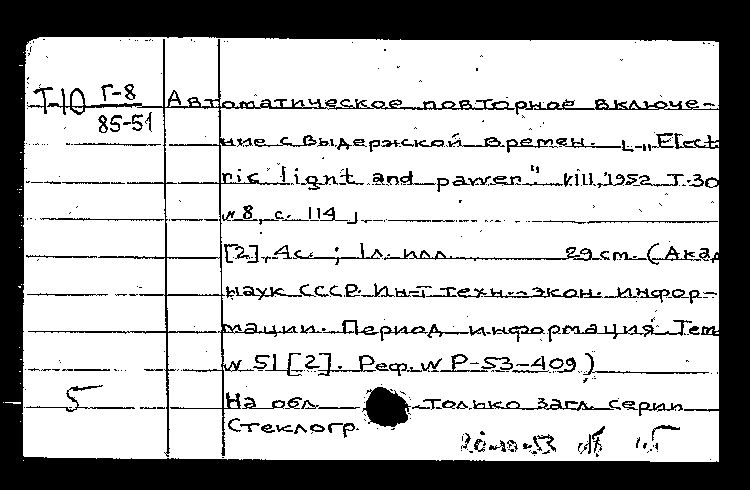 Т-10 Г-8 Автоматическое повторное включе-
85-51
ние с выдержкой времен. [„Elect
ric light and pawer" VIII, 1952 T.30
№8, с. 114]
[2], 4с. ; 1л. илл. 29 cm. (Акад
наук СССР. Ин-т техн.-экон. инфор-
мации. Период информация Тем
№ 51 [2]. Реф. № Р-53-409)
5 На обл. только загл. серии
Стеклогр.